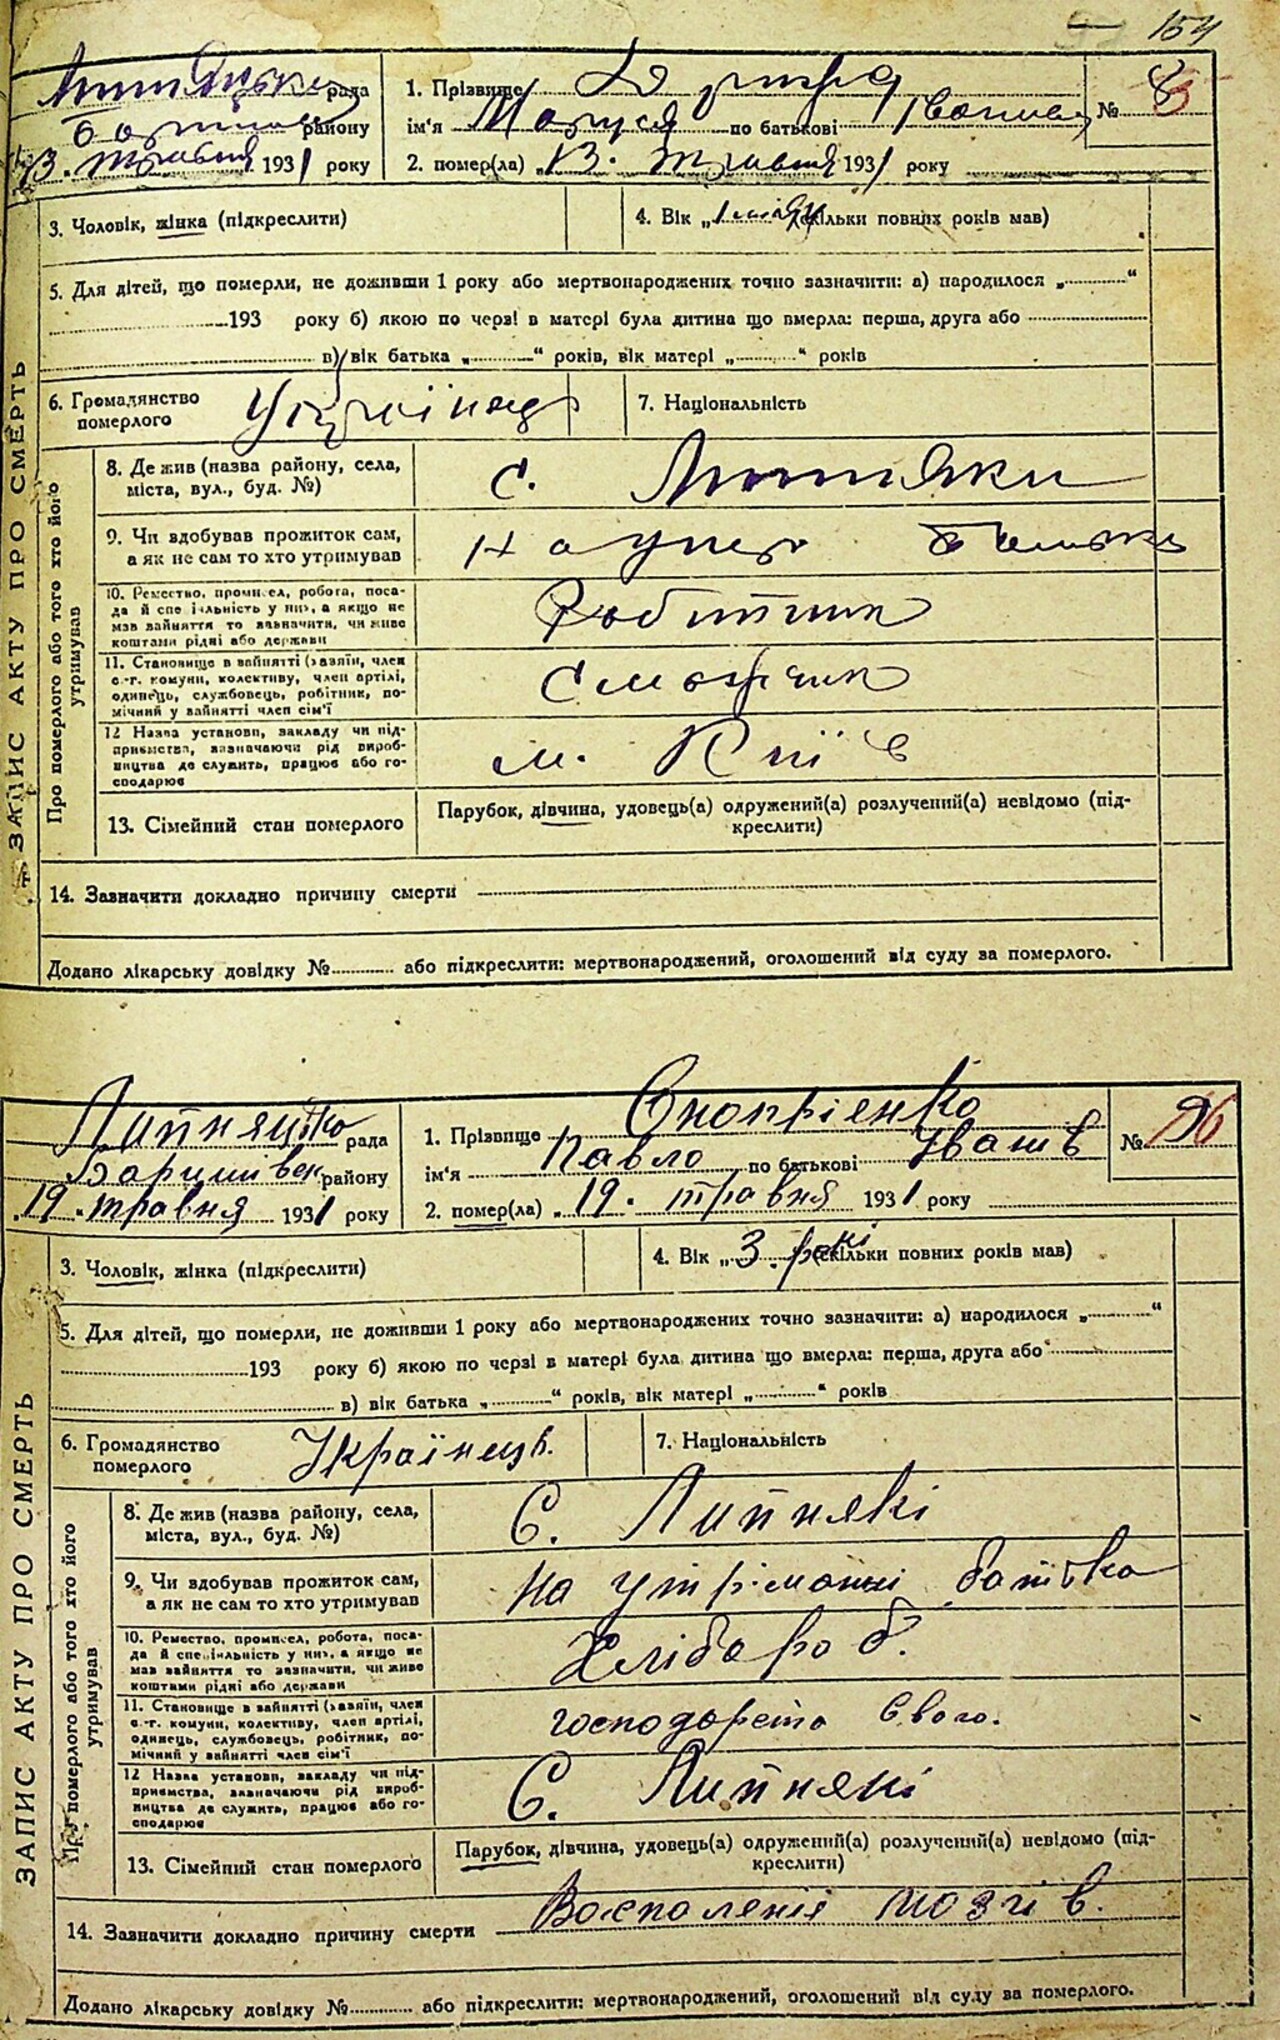 154
рада
району
13. травня 1931 року
1. Прізвище
ім'я Маруся по батькові Іванівна
2. помер(ла) „13. травня 1931 року
№ 8
ЗАПИС АКТУ ПРО СМЕРТЬ
3. Чоловік, жінка (підкреслити)
4. Вік „1 (скільки повних років мав)
5. Для дітей, що померли, не доживши 1 року або мертвонароджених точно зазначити: а) народилося „ “
193 року б) якою по черзі в матері була дитина що вмерла: перша, друга або
в) вік батька „ “ років, вік матері „ “ років
6. Громадянство
померлого
7. Національність
Про померлого або того хто його
утримував
8. Де жив (назва району, села,
міста, вул., буд. №)
с.
9. Чи вдобував прожиток сам,
а як не сам то хто утримував
10. Ремество, промисел, робота, поса-
да й спеціальність у них, а якщо не
мав вайняття то зазначити, чи живе
коштами рідні або держави
Робітник
11. Становище в вайнятті (хазяїн, член
с.-г. комуни, колективу, член артілі,
одинець, службовець, робітник, по-
мічний у вайнятті член сім'ї
12 Назва установи, закладу чи під-
приємства, вазначаючи рід вироб-
ництва де служить, працює або го-
сподарює
м. Київ
13. Сімейний стан померлого
Парубок, дівчина, удовець(а) одружений(а) розлучений(а) невідомо (під-
креслити)
14. Зазначити докладно причину смерти
Додано лікарську довідку № або підкреслити: мертвонароджений, оголошений від суду за померлого.
Липняцько рада
Баришівськ району
„19 “ травня 1931 року
1. Прізвище Онопрієнко
ім'я Павло по батькові Іванів
2. помер(ла) „19. травня 1931 року
№ 9
ЗАПИС АКТУ ПРО СМЕРТЬ
3. Чоловік, жінка (підкреслити)
4. Вік „3. рокі (скільки повних років мав)
5. Для дітей, що померли, не доживши 1 року або мертвонароджених точно зазначити: а) народилося „ “
193 року б) якою по черзі в матері була дитина що вмерла: перша, друга або
в) вік батька „ “ років, вік матері „ “ років
6. Громадянство
померлого
Українець.
7. Національність
Про померлого або того хто його
утримував
8. Де жив (назва району, села,
міста, вул., буд. №)
С. Липнякі
9. Чи вдобував прожиток сам,
а як не сам то хто утримував
На утріманні батька
10. Ремество, промисел, робота, поса-
да й спеціальність у них, а якщо не
мав вайняття то зазначити, чи живе
коштами рідні або держави
Хлібароб.
11. Становище в вайнятті (хазяїн, член
с.-г. комуни, колективу, член артілі,
одинець, службовець, робітник, по-
мічний у вайнятті член сім'ї
господарств свого.
12 Назва установи, закладу чи під-
приємства, вазначаючи рід вироб-
ництва де служить, працює або го-
сподарює
С. Липнякі
13. Сімейний стан померлого
Парубок, дівчина, удовець(а) одружений(а) розлучений(а) невідомо (під-
креслити)
14. Зазначити докладно причину смерти Воспаленія мозгів.
Додано лікарську довідку № або підкреслити: мертвонароджений, оголошений від суду за померлого.